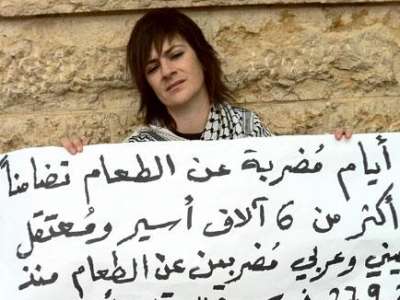 أيام مُضربة عن الطعام تضامناً
أكثر من 6 آلاف أسير ومُعتقل
وعربي مُضربين عن الطعام منذ